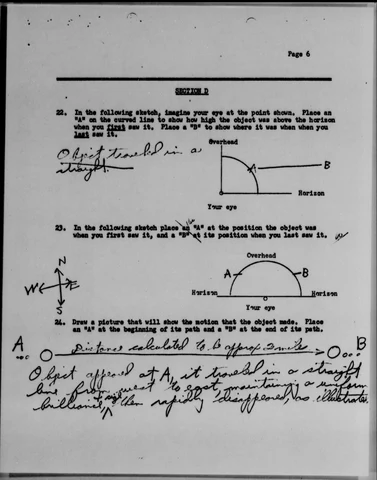 Page 6
SECTION D
22. In the following sketch, imagine your eye at the point shown. Place an
"A" on the curved line to show how high the object was above the horizon
when you first saw it. Place a "B" to show where it was when you
last saw it.
Overhead
Object traveled in a
straight
A
B
Horizon
Your eye
23. In the following sketch place an "A" at the position the object was
when you first saw it, and a "B" at its position when you last saw it.
N
W E
S
Overhead
A B
Horizon Horizon
Your eye
24. Draw a picture that will show the motion that the object made. Place
an "A" at the beginning of its path and a "B" at the end of its path.
A B
Distance calculated to be approx. 2 miles
Object appeared at A, it traveled in a straight
line from west to east, maintaining a uniform
brilliance, then rapidly disappeared, as illustrated.